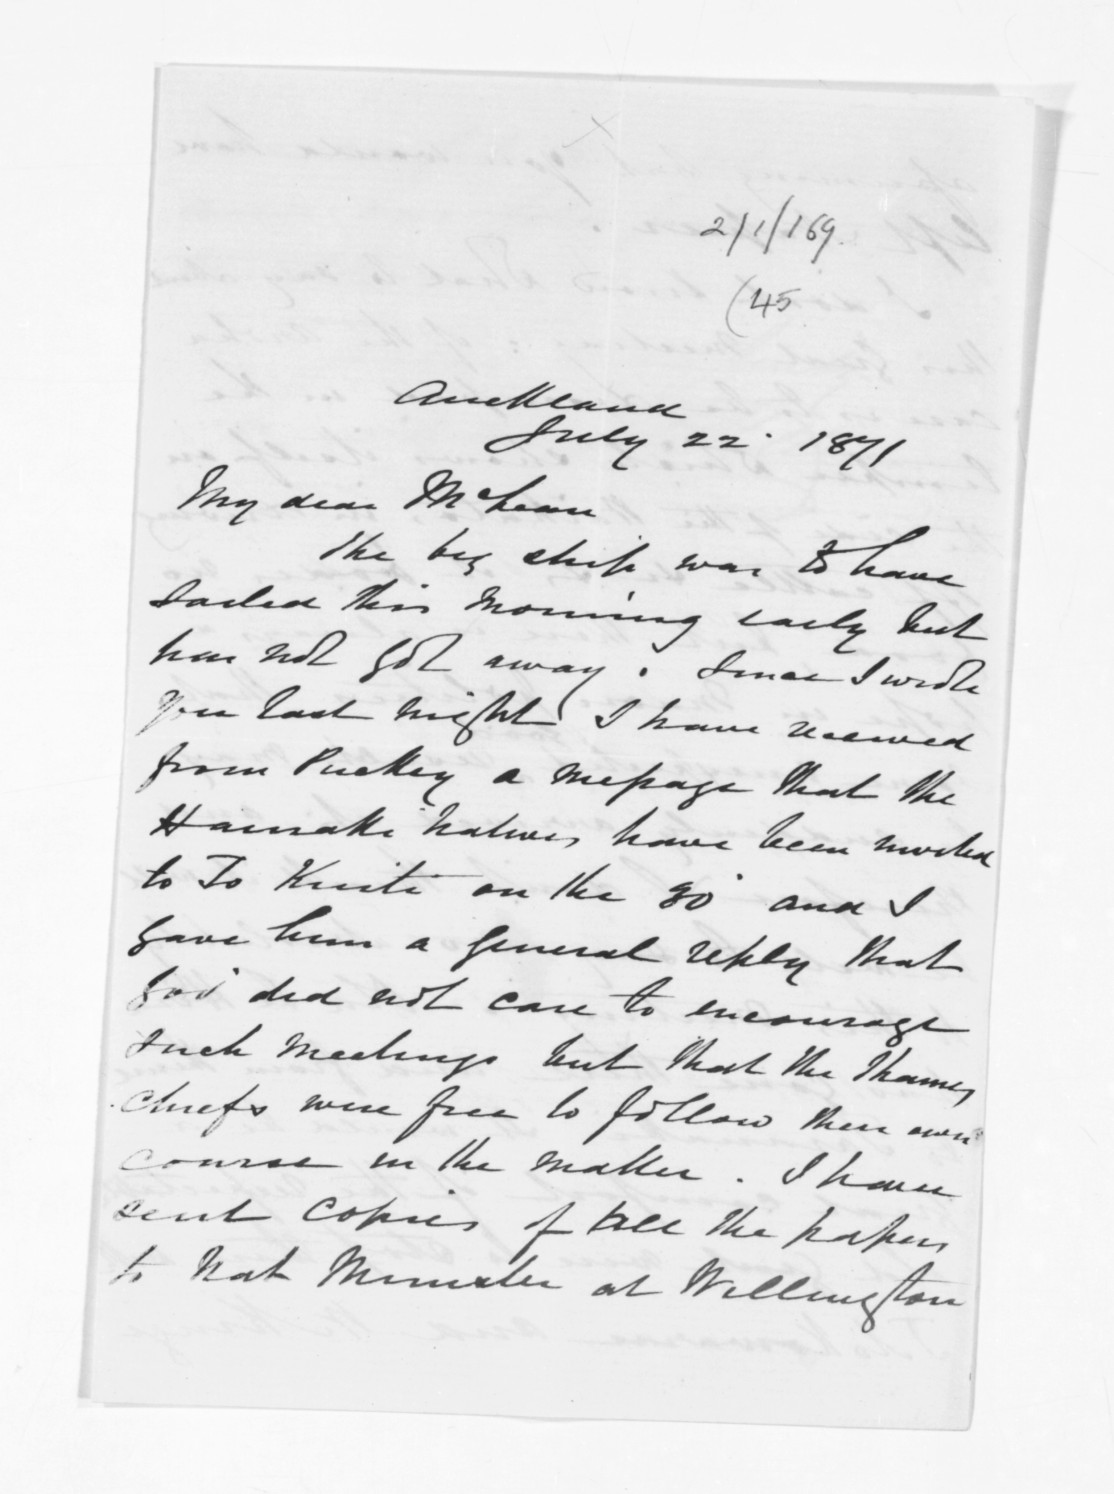 2/1/169.
(45
Auckland
July 22. 1871
My dear McLean
The big ship was to have
sailed this morning early but
has not got away. Since I wrote
you last night I have received
from Puckey a message that the
Hauraki natives have been invited
to Te Kuiti on the 30 and I
gave him a general reply that
Govt did not care to encourage
such meetings but that the Thames
chiefs were free to follow their own
course in the matter. I have
sent copies of all the papers
to Nat Minister at Wellington